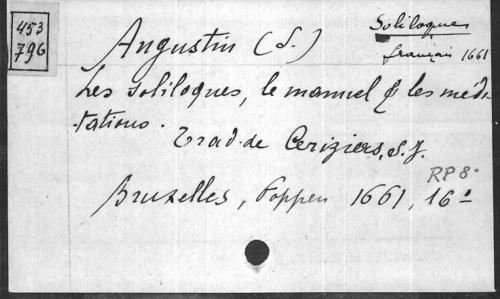 453
796
Augustin (S.)
Soliloques
français 1661
Les soliloques, le manuel & les médi-
tations.
Trad. de Ceriziers, S. J.
RP 8°
Bruxelles, Foppen 1661, 16°